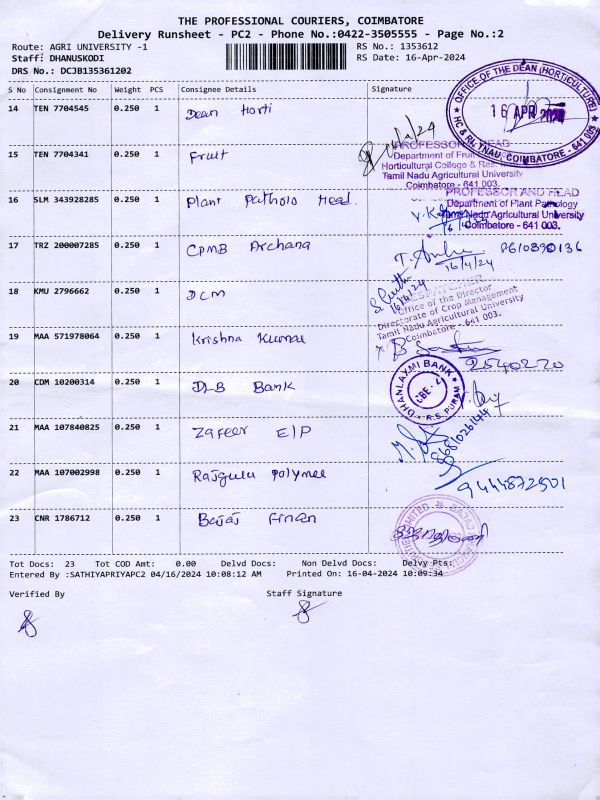 THE PROFESSIONAL COURIERS, COIMBATORE
Delivery Runsheet - PC2 - Phone No.:0422-3505555 - Page No.:2
Route: AGRI UNIVERSITY -1
RS No.: 1353612
Staff: DHANUSKODI
RS Date: 16-Apr-2024
DRS No.: DCJB135361202
S No Consignment No Weight PCS Consignee Details Signature
14 TEN 7704545 0.250 1 Dean Horti
OFFICE OF THE DEAN (HORTICULTURE)
16 APR 2024
HC & RI, TNAU, COIMBATORE - 641 003.
15 TEN 7704341 0.250 1 Fruit
PROFESSOR HEAD
Department of Fruit
Horticultural College & Res.
Tamil Nadu Agricultural University
Coimbatore - 641 003.
16 SLM 343928285 0.250 1 Plant Patholo Head.
PROFESSOR AND HEAD
Department of Plant Pathology
Tamil Nadu Agricultural University
Coimbatore - 641 003.
17 TRZ 200007285 0.250 1 CPMB Archana
16/4/24
18 KMU 2796662 0.250 1 DCM
16/4/24
DESPATCHER
Office of the Director
Directorate of Crop Management
Tamil Nadu Agricultural University
Coimbatore - 641 003.
19 MAA 571978064 0.250 1 Krishna Kumar
2540270
20 CDM 10200314 0.250 1 DLB Bank
DHANLAXMI BANK
CBE-2
R.S. PURAM
21 MAA 107840825 0.250 1 Zafeer E/P
22 MAA 107002998 0.250 1 Rajguru Polymer
9444872501
23 CNR 1786712 0.250 1 Bajaj Finan
Tot Docs: 23 Tot COD Amt: 0.00 Delvd Docs: Non Delvd Docs: Delvy Pts:
Entered By :SATHIYAPRIYAPC2 04/16/2024 10:08:12 AM Printed On: 16-04-2024 10:09:34
Verified By
Staff Signature